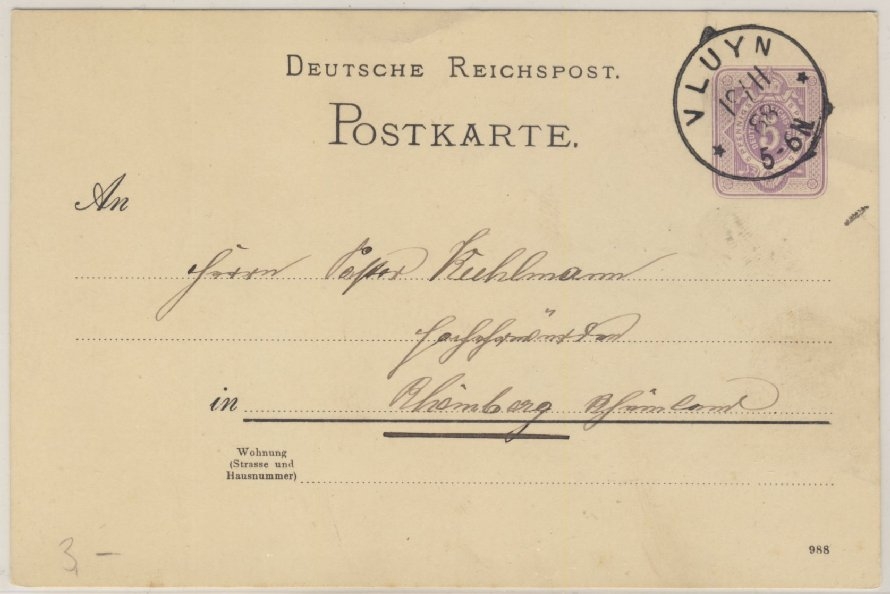 DEUTSCHE REICHSPOST.
POSTKARTE.
VLUYN
12/11
88
5-6N
5
An
Herrn Pastor Kuhlmann
Hochehrwürden
in Rheinberg Rheinland
Wohnung
(Strasse und
Hausnummer)
3,–
988